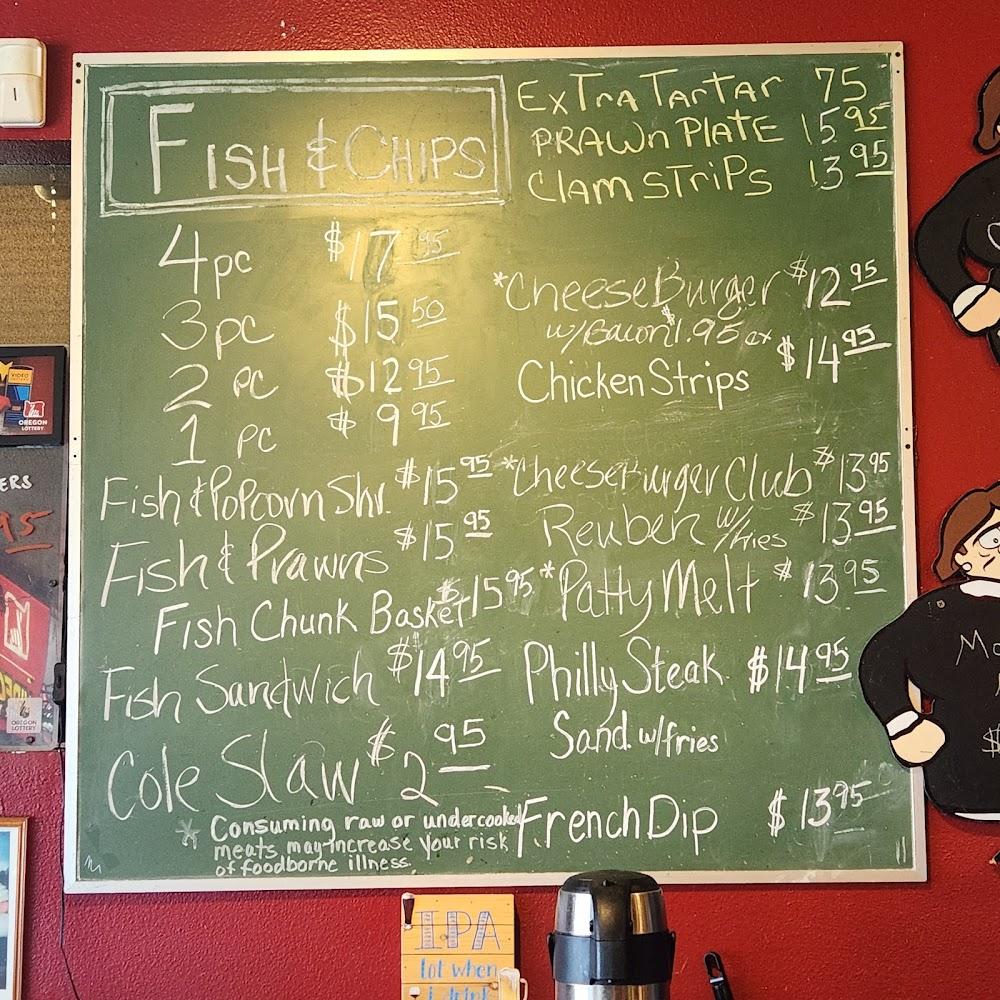 FISH & CHIPS
4 pc $17 95
3 pc $15 50
2 pc $12 95
1 pc $9 95
Fish & Popcorn Shr. $15 95
Fish & Prawns $15 95
Fish Chunk Basket $15 95
Fish Sandwich $14 95
Cole Slaw $2 95
* Consuming raw or undercooked
meats may increase your risk
of foodborne illness.
ExTra TarTar 75
PRAWn PLATE 15 95
Clam STriPs 13 95
*CheeseBurger $12 95
w/Bacon $1.95 ex
Chicken Strips $14 95
*CheeseBurger Club $13 95
Reuben w/fries $13 95
*Patty Melt $13 95
Philly Steak $14 95
Sand. w/fries
French Dip $13 95
IPA
lot when
i drink
VIDEO
OREGON
LOTTERY
ERS
OREGON
LOTTERY
$